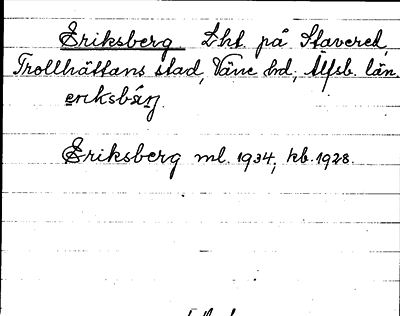 Eriksberg Lht. på Stavered,
Trollhättans stad, Väne hd, Älfsb. län.
Eriksberg ml. 1934, kb. 1928.